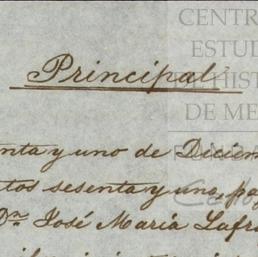 CENTR
ESTU
DE HIST
DE ME
Principal
nta y uno de Diciem
tos sesenta y uno, pa
Dn. José María Lafr